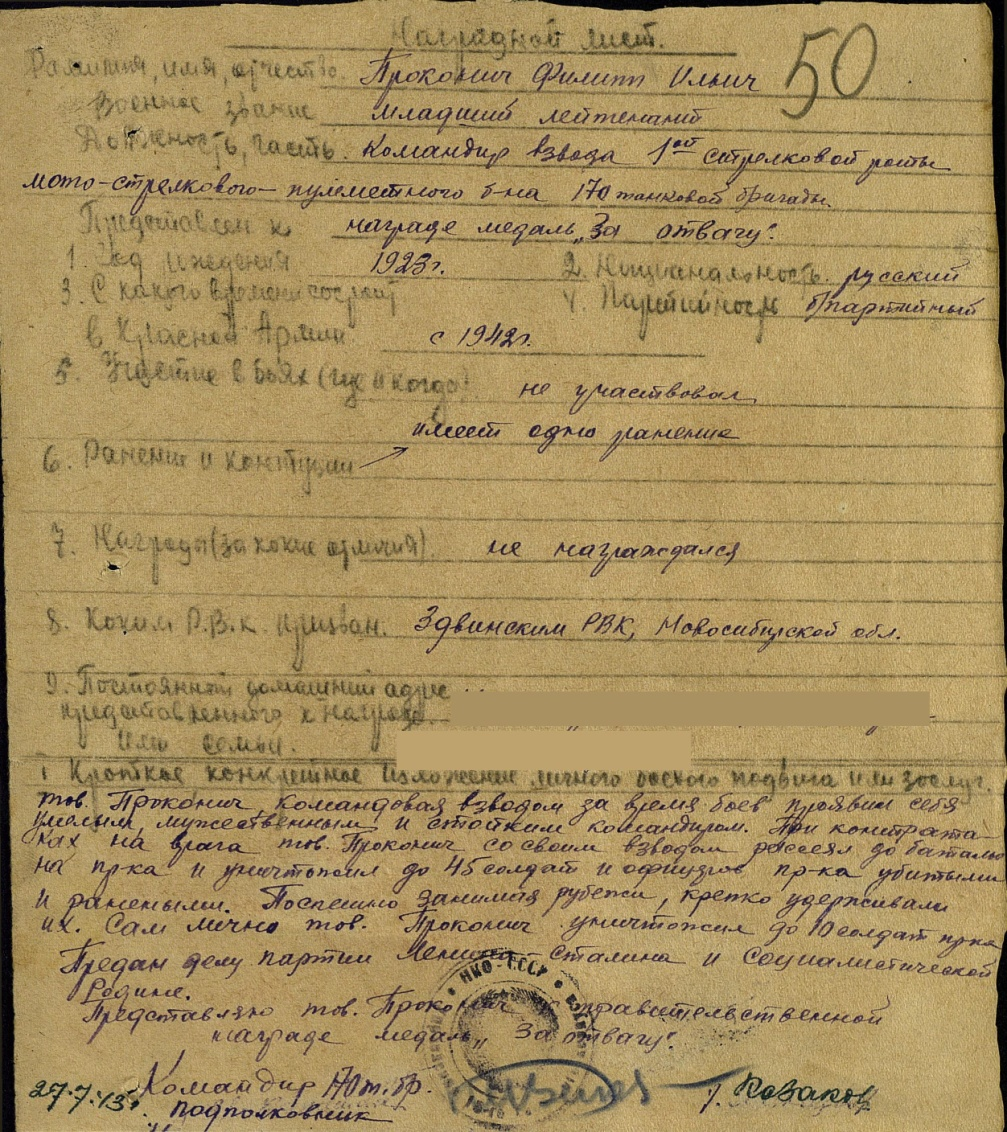 Наградной лист.
50
Фамилия, имя, отчество. Проконич Филипп Ильич
Военное звание младший лейтенант
Должность, часть. Командир взвода 1ой стрелковой роты
мото-стрелкового-пулеметного б-на 170 танковой бригады
Представлен к награде медаль „За отвагу".
1. Год рождения 1923г. 2. Национальность. русский
3. С какого времени состоит 4. Партийность б/партийный
в Красной Армии с 1942г.
5. Участие в боях (где и когда) не участвовал
имеет одно ранение
6. Ранения и контузии
7. Награды (за какие отличия). не награждался
8. Каким Р.В.К. призван. Здвинским РВК, Новосибирской обл.
9. Постоянный домашний адрес
представленного к награде.
или семьи.
1 Краткое конкретное изложение личного боевого подвига или заслуг.
тов. Проконич, командовая взводом за время боев проявил себя
умелым, мужественным и стойким командиром. При контрата-
ках на врага тов. Проконич со своим взводом рассеял до батальо
на пр-ка и уничтожил до 45 солдат и офицеров пр-ка убитыми
и ранеными. Поспешно занимая рубежи, крепко удерживали
их. Сам лично тов. Проконич уничтожил до 10 солдат пр-ка
Предан делу партии Ленина-Сталина и Социалистической
Родине.
Представляю тов. Проконич к правительственной
награде медаль „За отвагу".
НКО-СССР
27.7.43г. Командир 170 т.бр.
подполковник Казаков